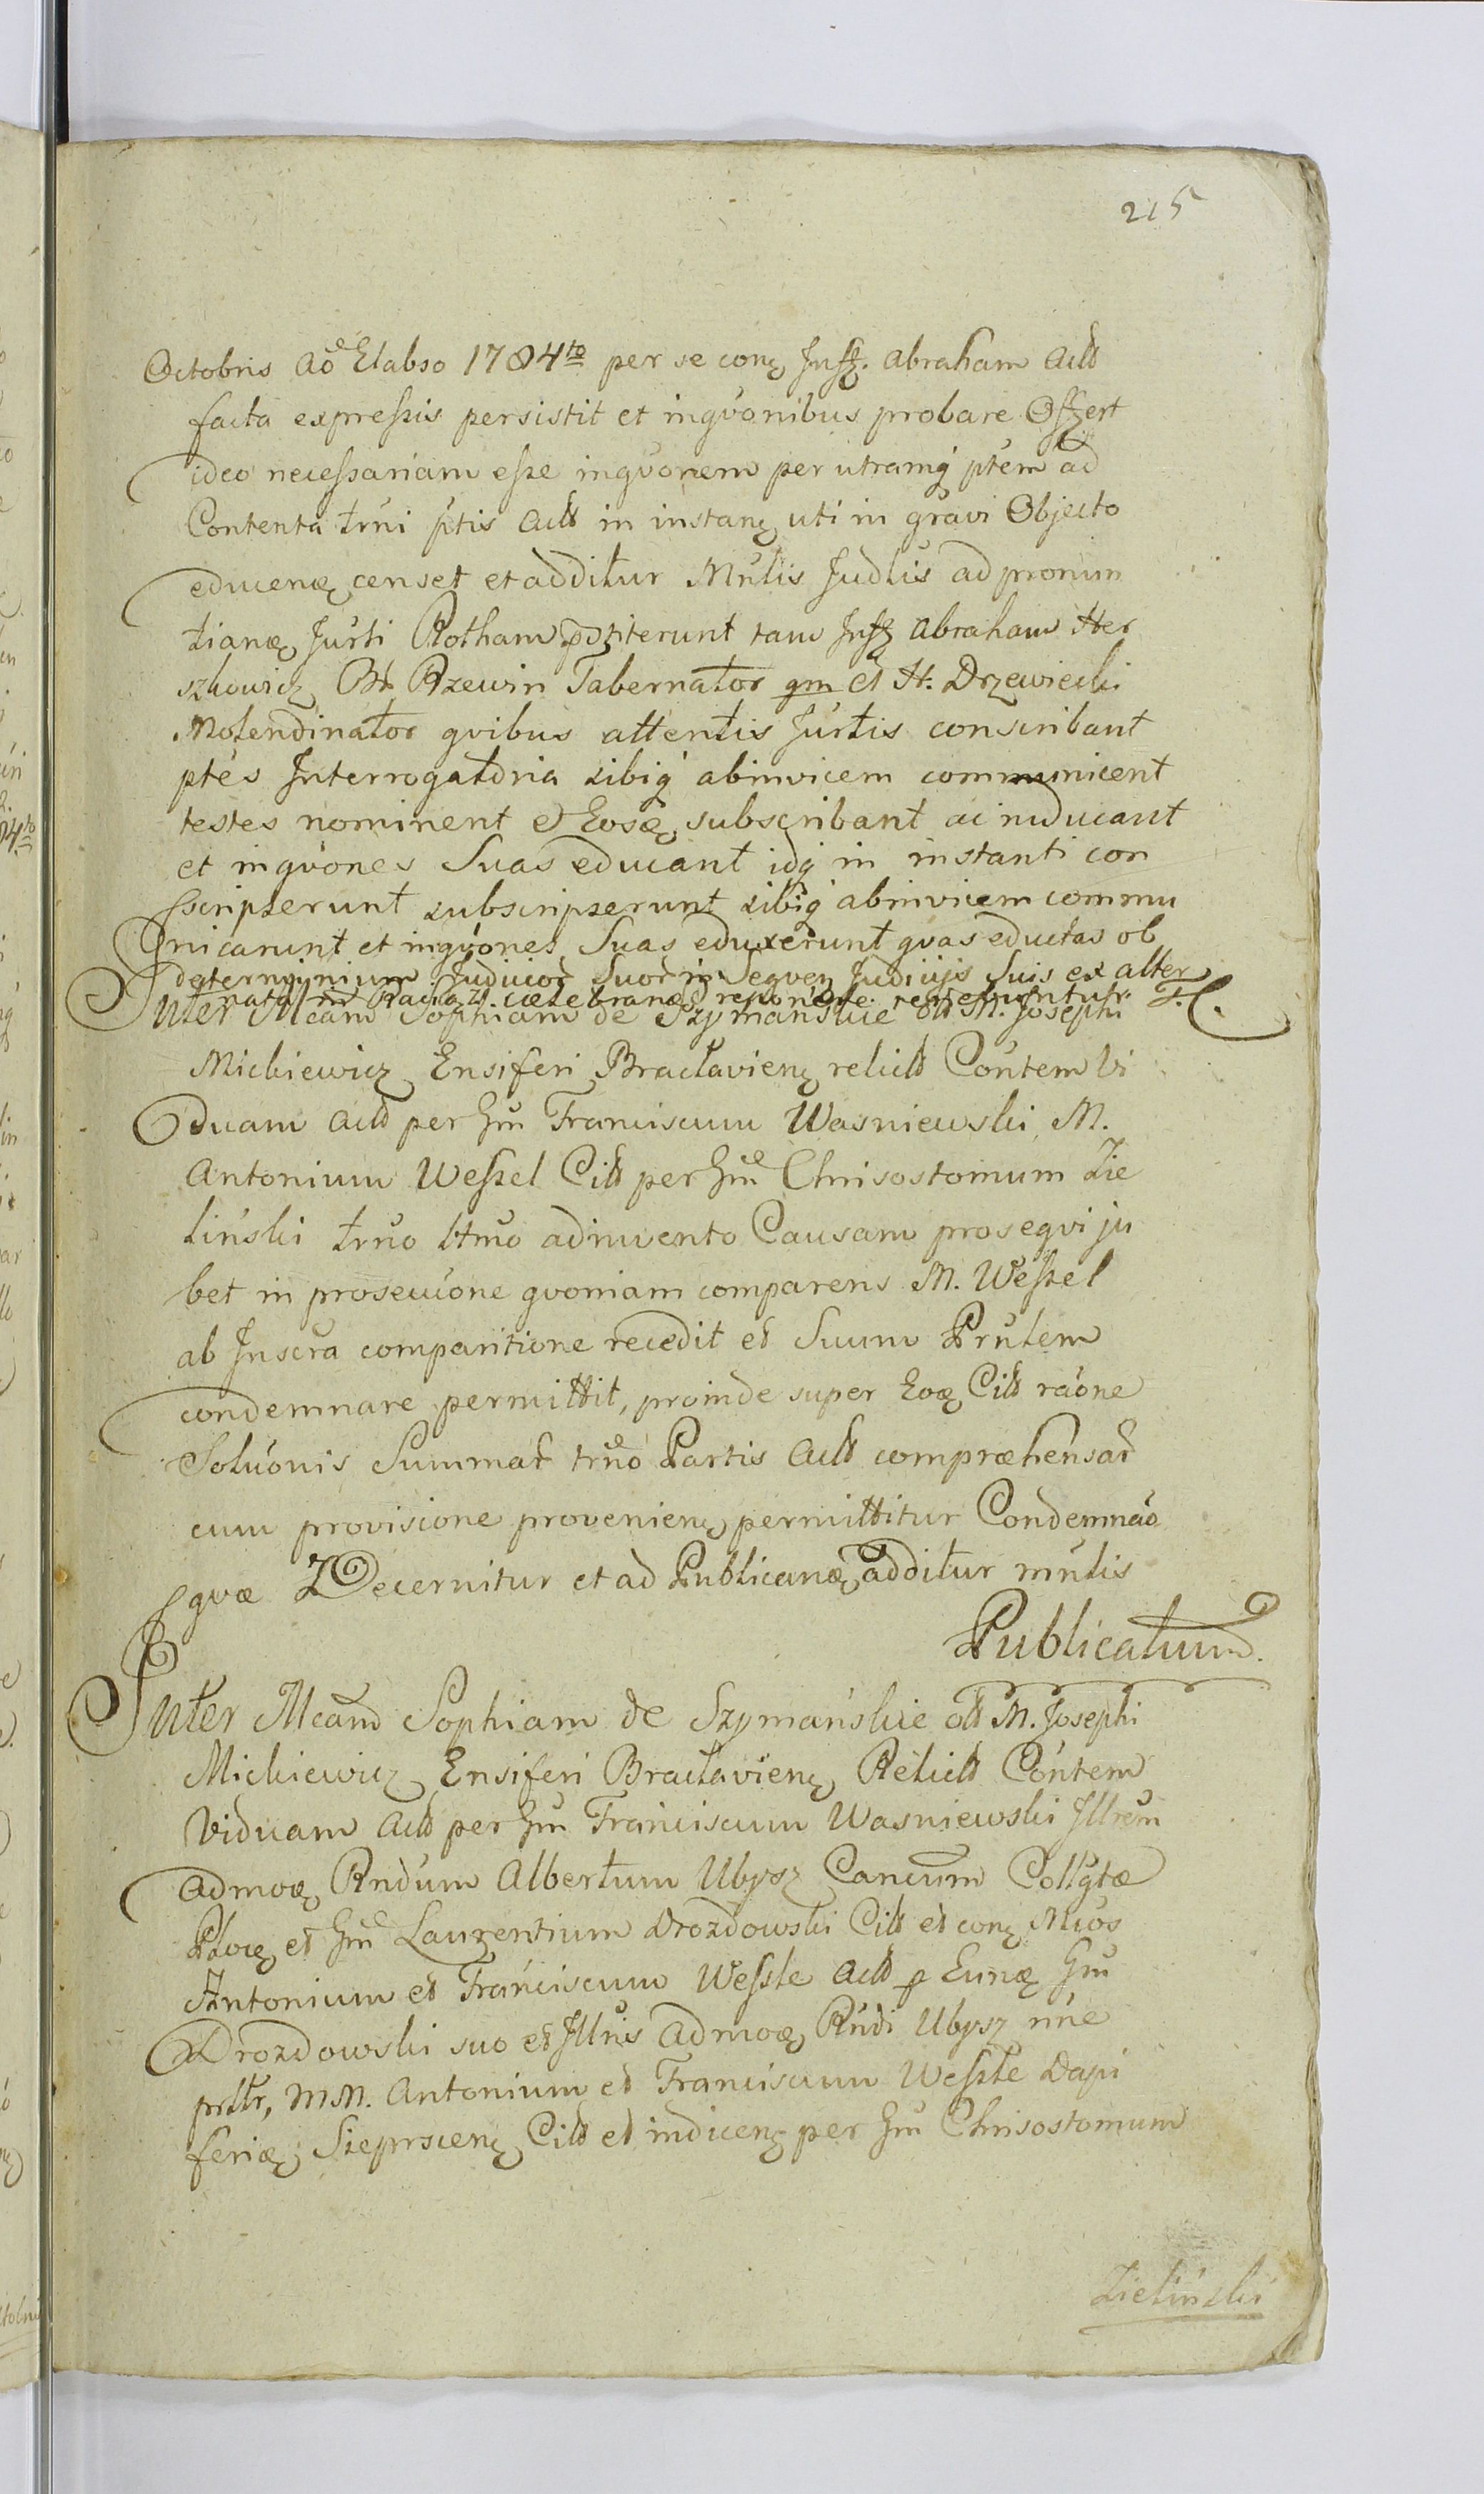 215
Octobris Aõ Elabso 1784to per se conę Infł. Abraham Actł
facta expressis persistit et inqvõnibus probare Offert
ideo necessariam esse inqvõnem per utramq ptem ad
Contenta trni ptis Actł in instanę uti in gravi Objecto
educenę censet et additur Mntis Judtis ad pronun
tianę Jurti Rotham tam Infł Abraham Her
szkowicz Rzewin Tabernator qm et H. Drzewiecki
Molendinator qvibus attentis Jurtis conscribant
ptes Interrogatoria sibiq abinvicem communicent
testes nominent et Eosę subscribant ac inducant
et inqvõnes Suas educant idq in instanti con
scripserunt subscripserunt sibiq abinvicem commu
nicarunt et inqvõnes Suas eduxerunt qvas eductas ob
determinium Judicior Suor in Seqven Judicijs Suis ex alter
nata celebranę reponere
Inter Mcam Sophiam de Szymanskie ołł M. Josephi
Mickiewicz Ensiferi Bracłavienę relictł Cõntem Vi
duam Actł per Gm Franciscum Wasniewski, M.
Antonium Wessel Citł per Gm Chrisostomum Zie
linski trno ltmo adinvento Causam proseqvi ju
bet in prosecuõne qvoniam comparens M. Wessel
ab Inscra comparitione recedit et Suum Prntem
condemnare permittit, proinde super Eoę Citł raõne
Soluõnis Summar trno Partis Actł compræhensar
cum provisione provenienę permittitur Condemnaõ
qvæ Decernitur et ad Publicanę additur mntis
Publicatum.
Inter Mcam Sophiam de Szymanskie ołł M. Josephi
Mickiewicz Ensiferi Bracłavienę Relictł Cõntem
Viduam Actł per Gm Franciscum Wasniewski Illrem
Admoę Rndum Albertum Ubysz Cancum Collgtæ
Plocę et Gm Laurentium Drozdowski Citł et conę Mcos
Antonium et Franciscum Wessle Actł p Eunę Gm
Drozdowski suo et Illris Admoę Rndi Ubysz nne
prltr, MM. Antonium et Franciscum Wessle Dapi
ferię Sieprscenę Citł et indicenę per Gm Chrisostomum
Zielinski